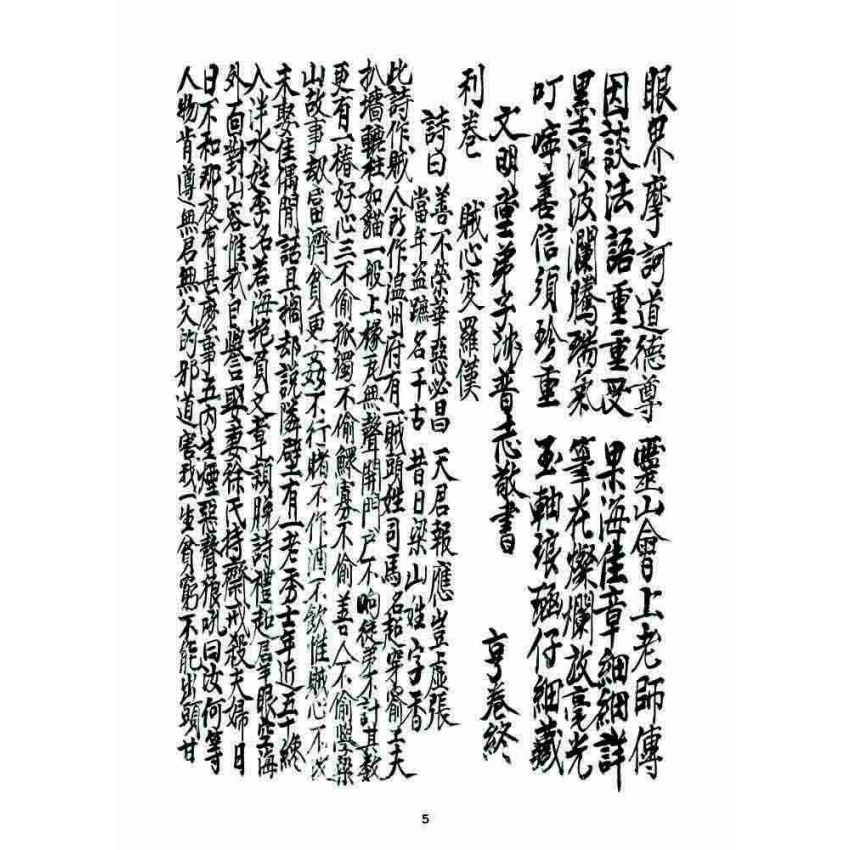 眼界摩訶道德尊 靈山會上老師傳
因談法語重重叉 果海佳章細細詳
墨浪波瀾騰瑞氣 筆花燦爛放毫光
叮嚀善信須珍重 玉軸琅函仔細藏
文明堂弟子 普志敬書 亨卷終
利卷 賊心変羅僕
詩曰 善不榮華惡必昌 天君報應豈虛張
當年盜蹠名千古 昔日梁山姓字香
此詩作賊人所作温州府有一賊頭姓司馬名起穿窬工夫
扒墻轉柱如貓一般上椽瓦無聲開門戶不响徒弟不計其数
更有一樁好心三不偷孤獨不偷鰥寡不偷善人不偷學梁
山故事劫富濟貧更 不行賭不作酒不飲惟賊心不改
未娶佳偶閒話且擱却説隣壁有一老秀士年近五十纔
入泮水姓李名若海抱負文章 詩禮起羣眼空海
外面對山容惟我自譽娶妻徐氏持齋戒殺夫婦日
日不和那夜有甚麽事五內生煙惡聲狼吼曰汝何等
人物肯遵無君無父的邪道害我一生貧窮不能出頭甘
5